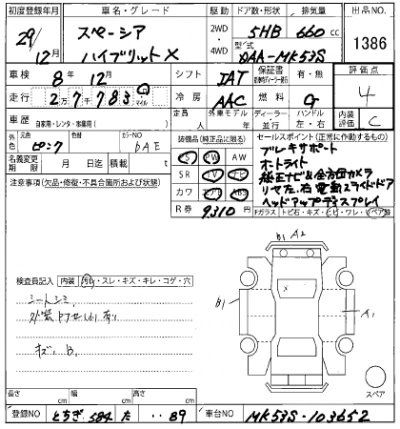 初度登録年月 車名・グレード 駆動 ドア数・形状 排気量 出品NO
29年 12月 スペーシア ハイブリットX 2WD・4WD 5HB 660cc 1386
型式 DAA-MK53S
車検 8年 12月 シフト IAT 保証書 有・無 評価点 4
走行 27783 km マイル 冷房 AAC 燃料 G 内装評価 C
車歴 自家用・レンタ・事業用( ) 定員 人 外車モデル 年 ディーラー・並行 ハンドル 左・右
外色 元色 ピンク カラーNO 装備品(純正品に限る) セールスポイント(正常に動作するもの)
名義変更期限 月 日迄 積載量 t
PS PW AW ブレーキサポート
オートライト
SR TV ナビ 純正ナビ&全方位カメラ
カワ エアB ABS リヤ左右電動スライドドア
R券 9310円 ヘッドアップディスプレイ
注意事項(欠品・修復・不具合箇所および状態)
Fガラス トビ石・キズ・ヒビ・ワレ・リペア跡
検査員記入 内装 汚れ・スレ・キズ・キレ・コゲ・穴
シートシミ
キズ B
B1 A2
B1
A1
スペア
長さ cm 幅 cm 高さ cm
登録NO とちぎ 584 た ・・89 車台NO MK53S-103652